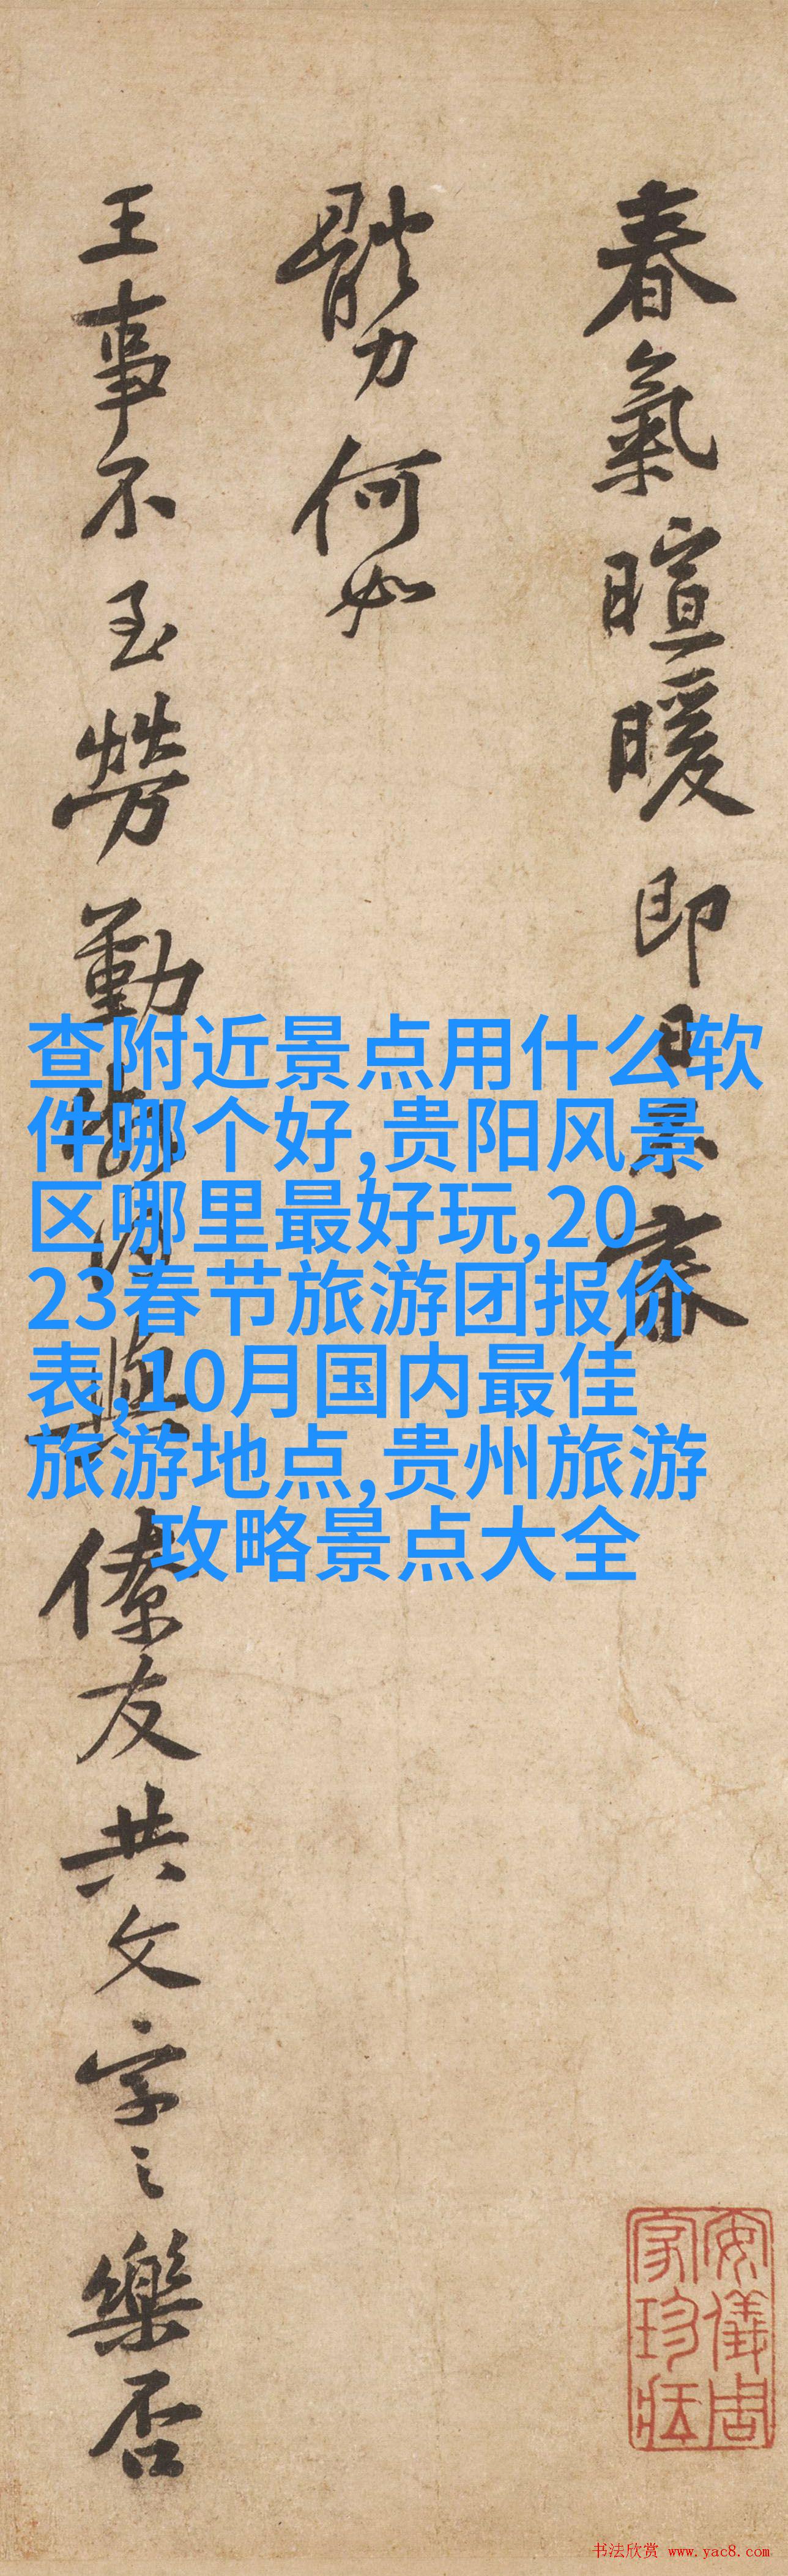 春氣暄暖即日景家
體力何如
王事不至勞勤與
僚友共文字之樂否
查附近景点用什么软
件哪个好,贵阳风景
区哪里最好玩,20
23春节旅游团报价
表,10月国内最佳
旅游地点,贵州旅游
攻略景点大全
安儀周
家珍藏
书法欣赏 www.yac8.com